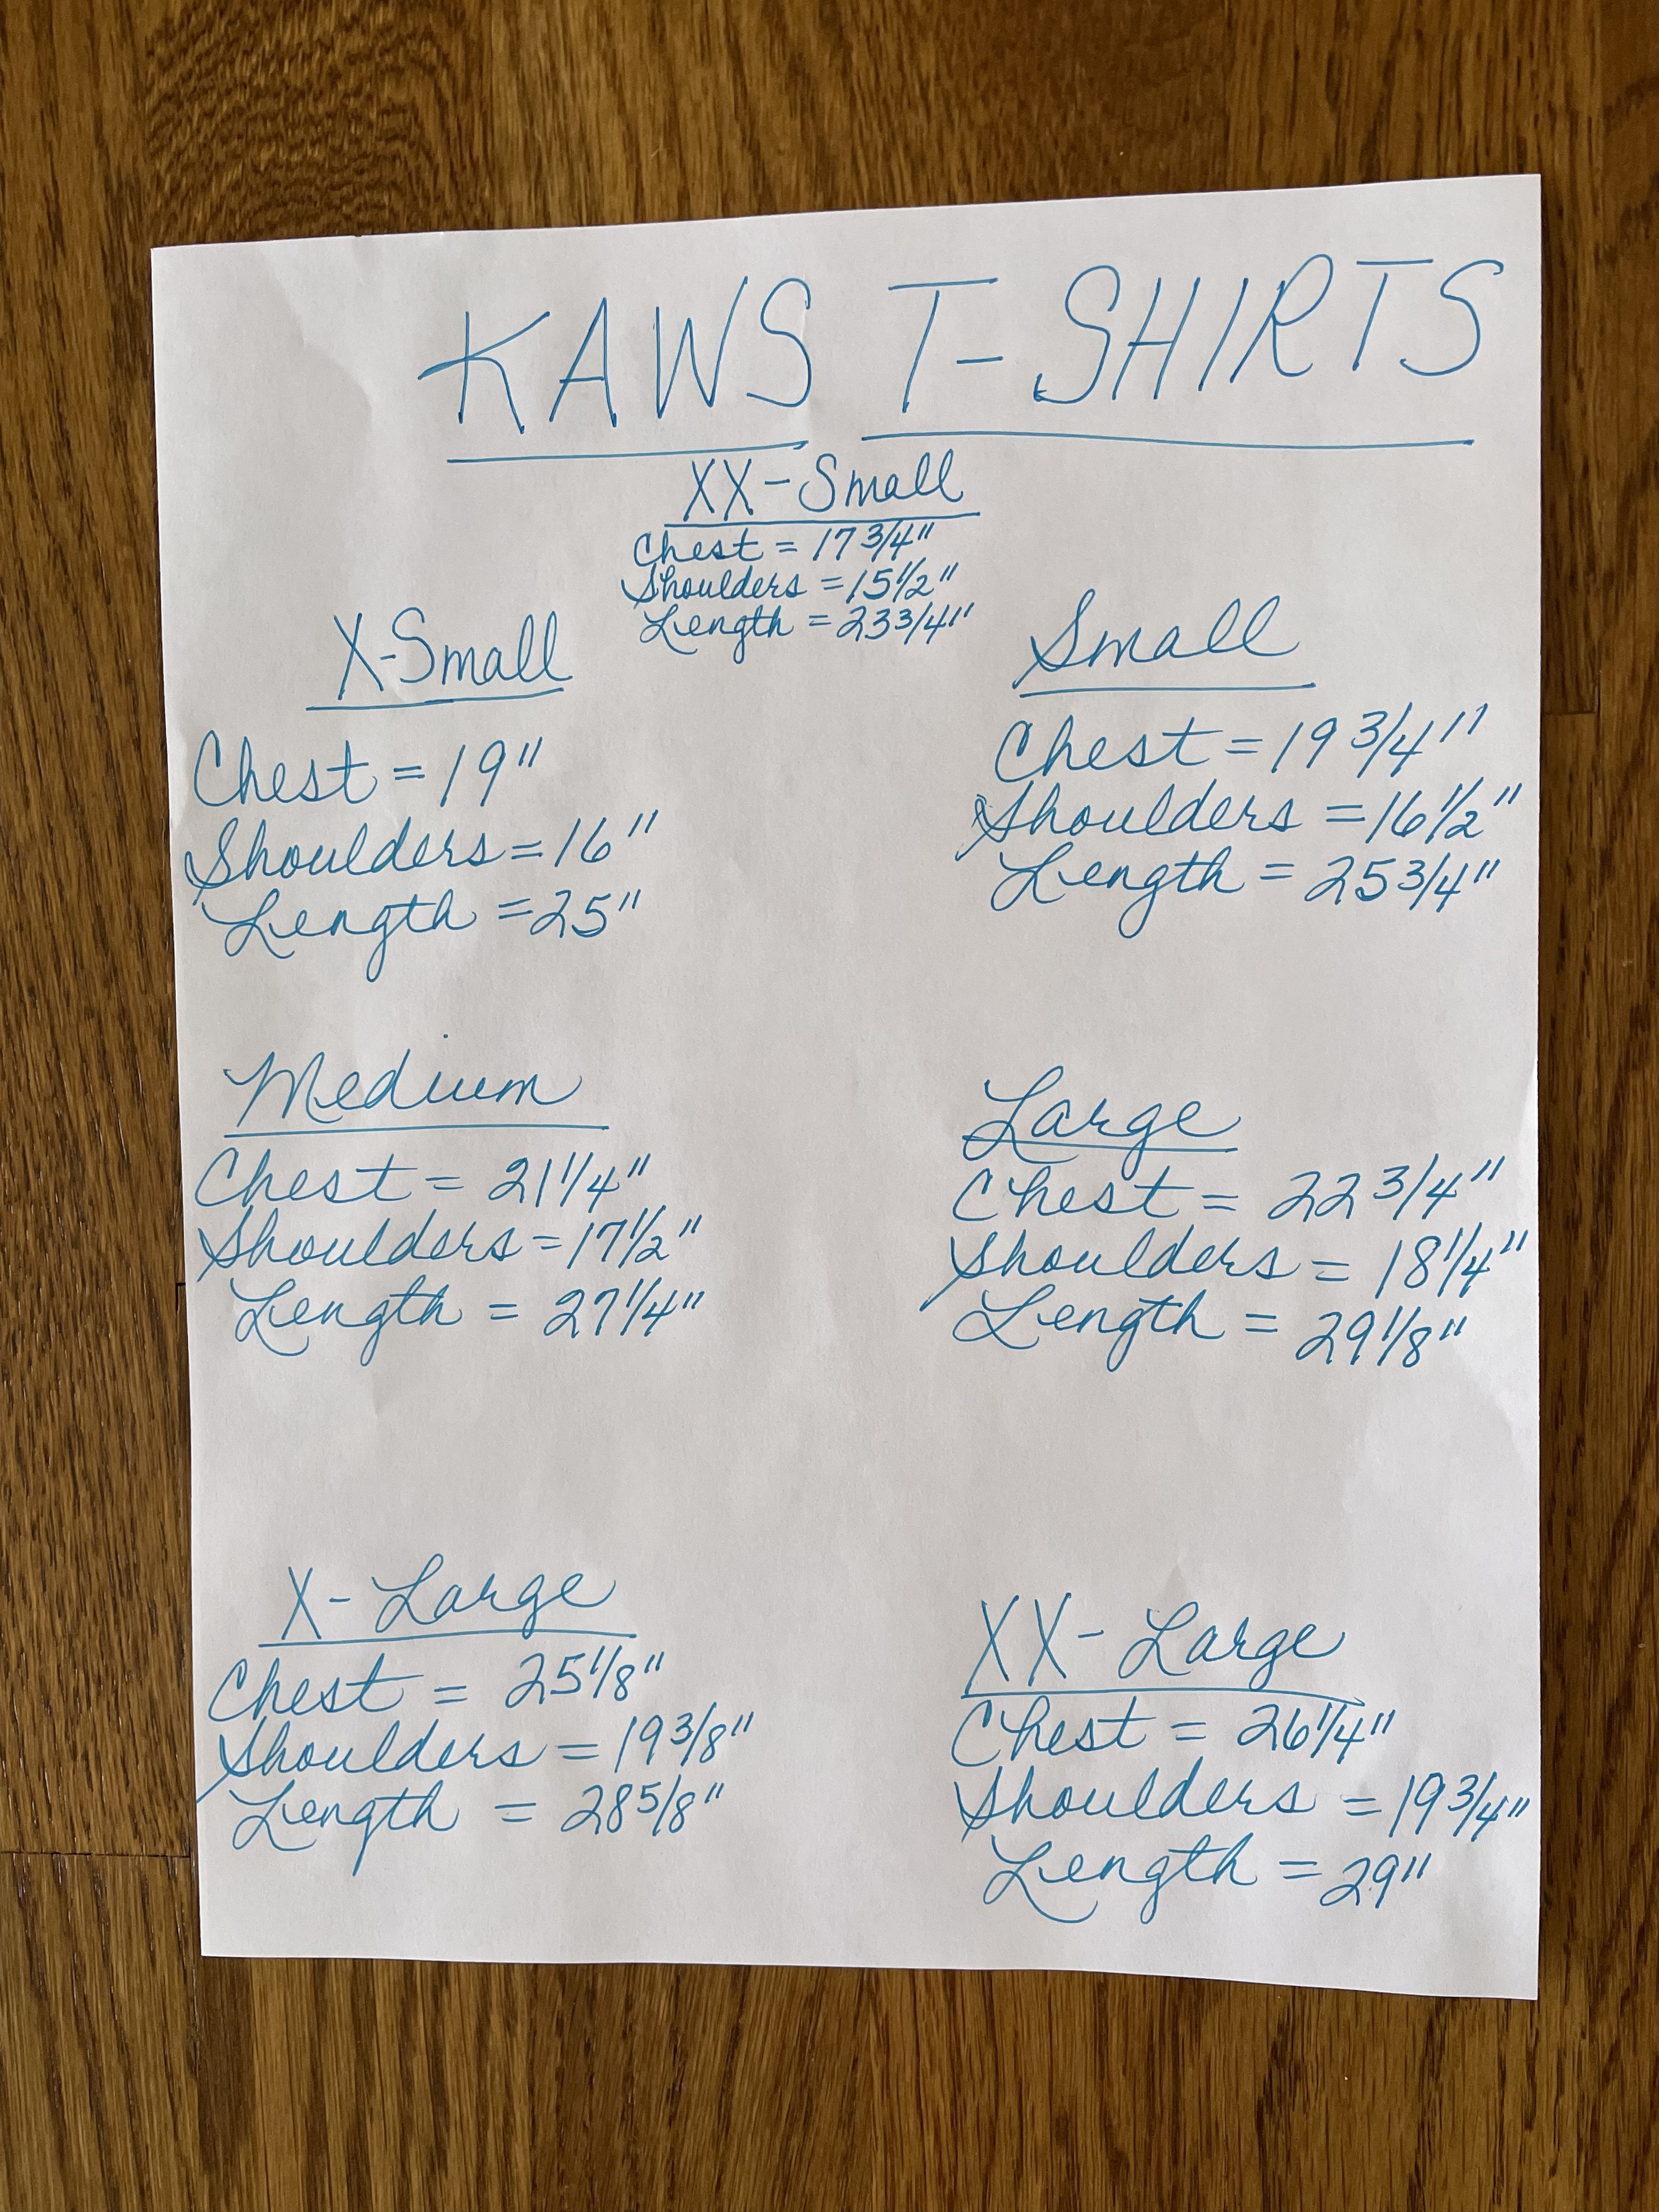 KAWS T-SHIRTS
XX-Small
Chest = 17 3/4"
Shoulders = 15 1/2"
Length = 23 3/4"
X-Small
Chest = 19"
Shoulders = 16"
Length = 25"
Small
Chest = 19 3/4"
Shoulders = 16 1/2"
Length = 25 3/4"
Medium
Chest = 21 1/4"
Shoulders = 17 1/2"
Length = 27 1/4"
Large
Chest = 22 3/4"
Shoulders = 18 1/4"
Length = 29 1/8"
X-Large
Chest = 25 1/8"
Shoulders = 19 3/8"
Length = 28 5/8"
XX-Large
Chest = 26 1/4"
Shoulders = 19 3/4"
Length = 29"